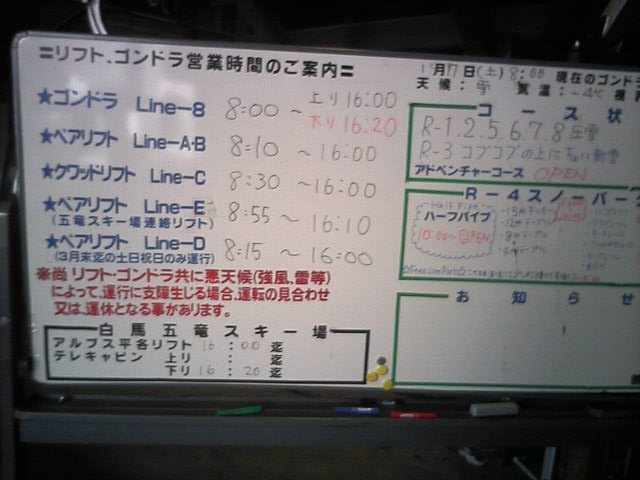 =リフト、ゴンドラ営業時間のご案内=
★ゴンドラ Line-8 8:00 ~ 上り16:00
下り16:20
★ペアリフト Line-A・B 8:10 ~ 16:00
★クワッドリフト Line-C 8:30 ~ 16:00
★ペアリフト Line-E 8:55 ~ 16:10
(五竜スキー場連絡リフト)
★ペアリフト Line-D 8:15 ~ 16:00
(3月末迄の土日祝日のみ運行)
※尚 リフト・ゴンドラ共に悪天候(強風、雷等)
によって、運行に支障生じる場合、運転の見合わせ
又は、運休となる事があります。
白馬五竜スキー場
アルプス平各リフト 16:00 迄
テレキャビン 上り : 迄
下り 16:20 迄
月17日(土) 8:00 現在のゴンド
天候:雪 気温:-4℃ 視
コース状
R-1.2.5.6.7.8 圧雪
R-3 コブコブの上にちょい新雪
アドベンチャーコース OPEN
R-4スノーパー
Half Pipe
ハーフパイプ
10:00~OPEN
お知らせ